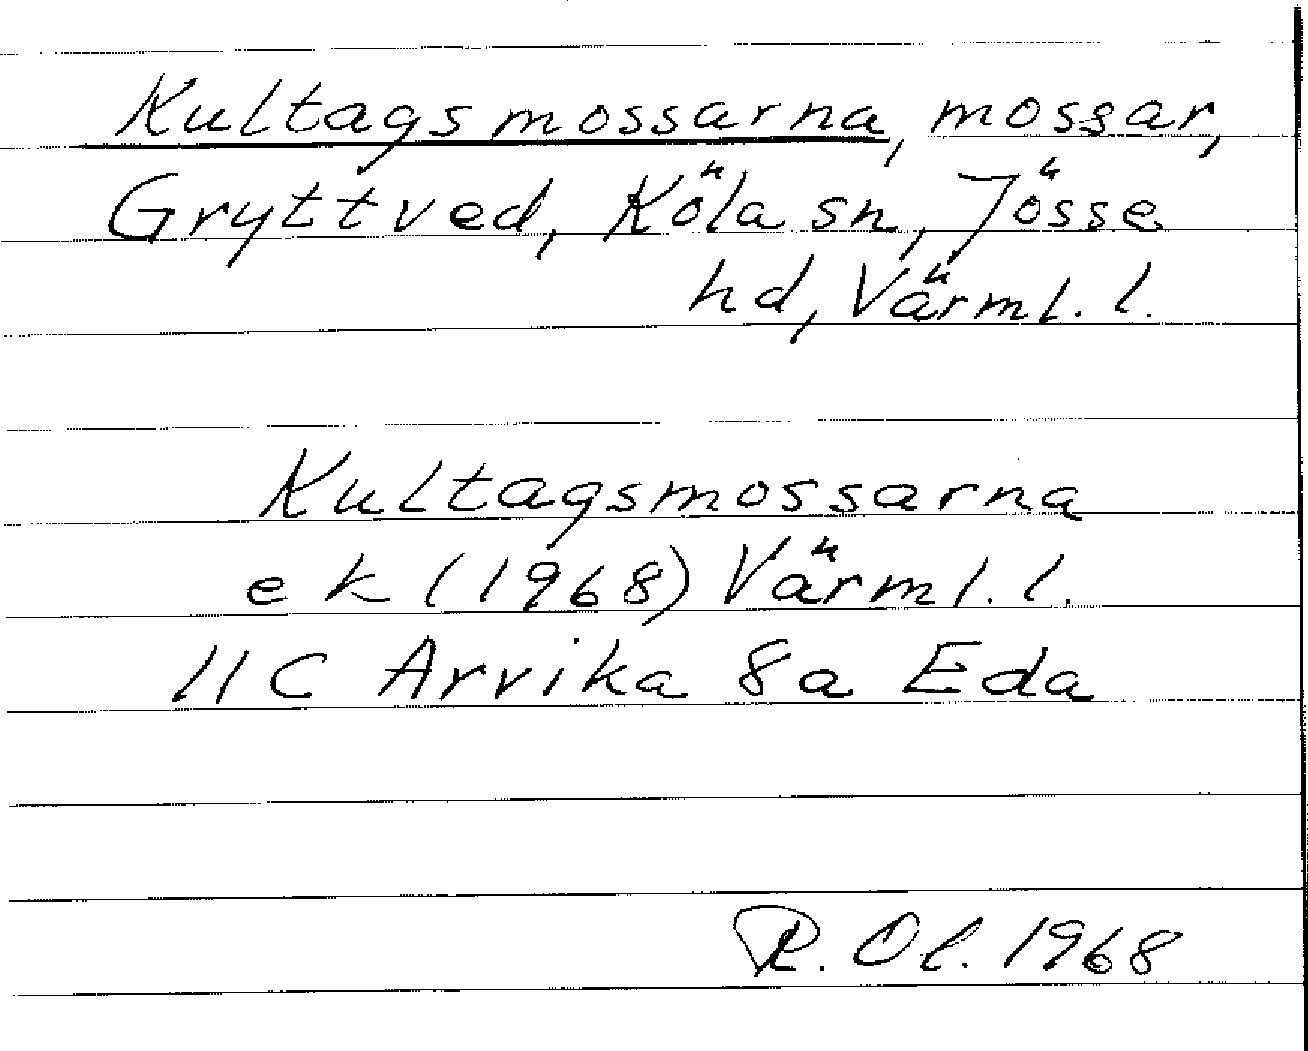 Kultagsmossarna, mossar,
Gryttved, Köla sn, Jösse
hd, Värml. l.
Kultagsmossarna
ek (1968) Värml. l.
11C Arvika 8a Eda
R. Ol. 1968